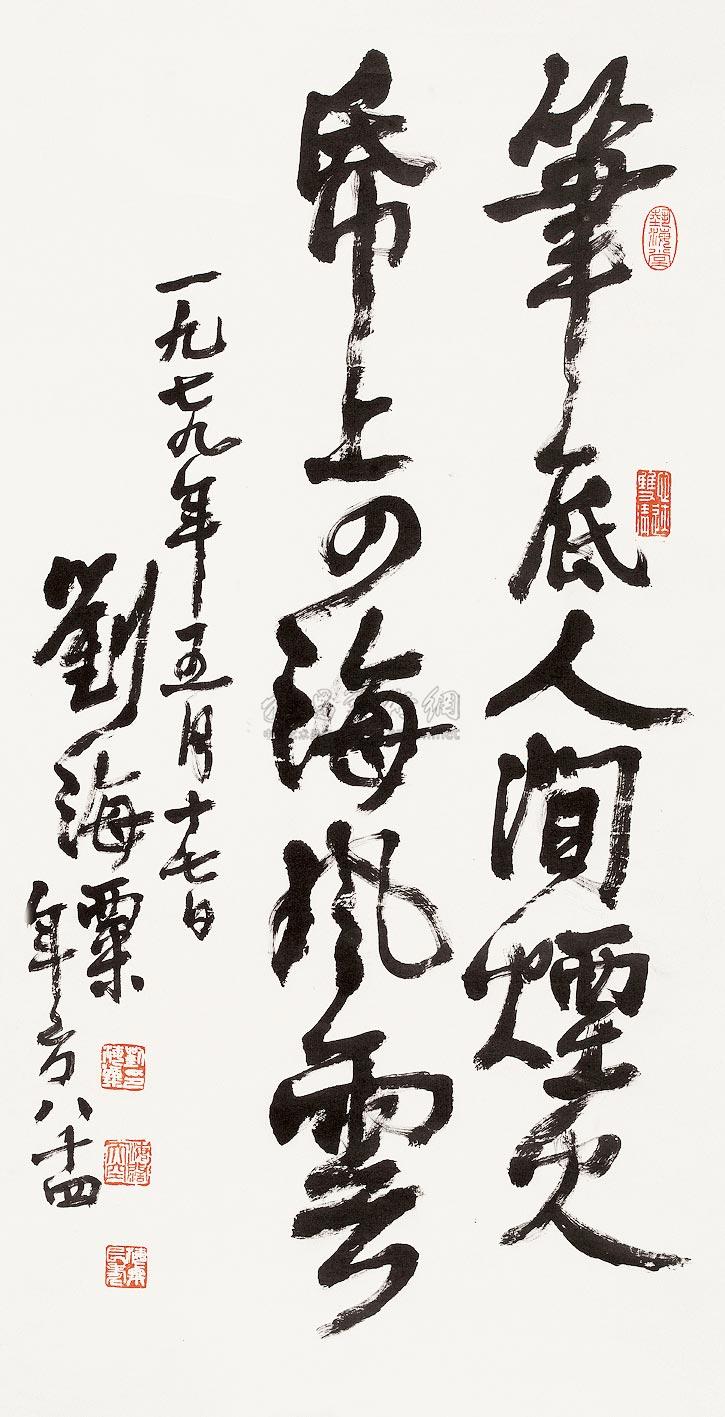 筆底人間煙火
帋上四海風雲
一九七九年五月十七日
劉海粟
年方八十四
心迹雙清